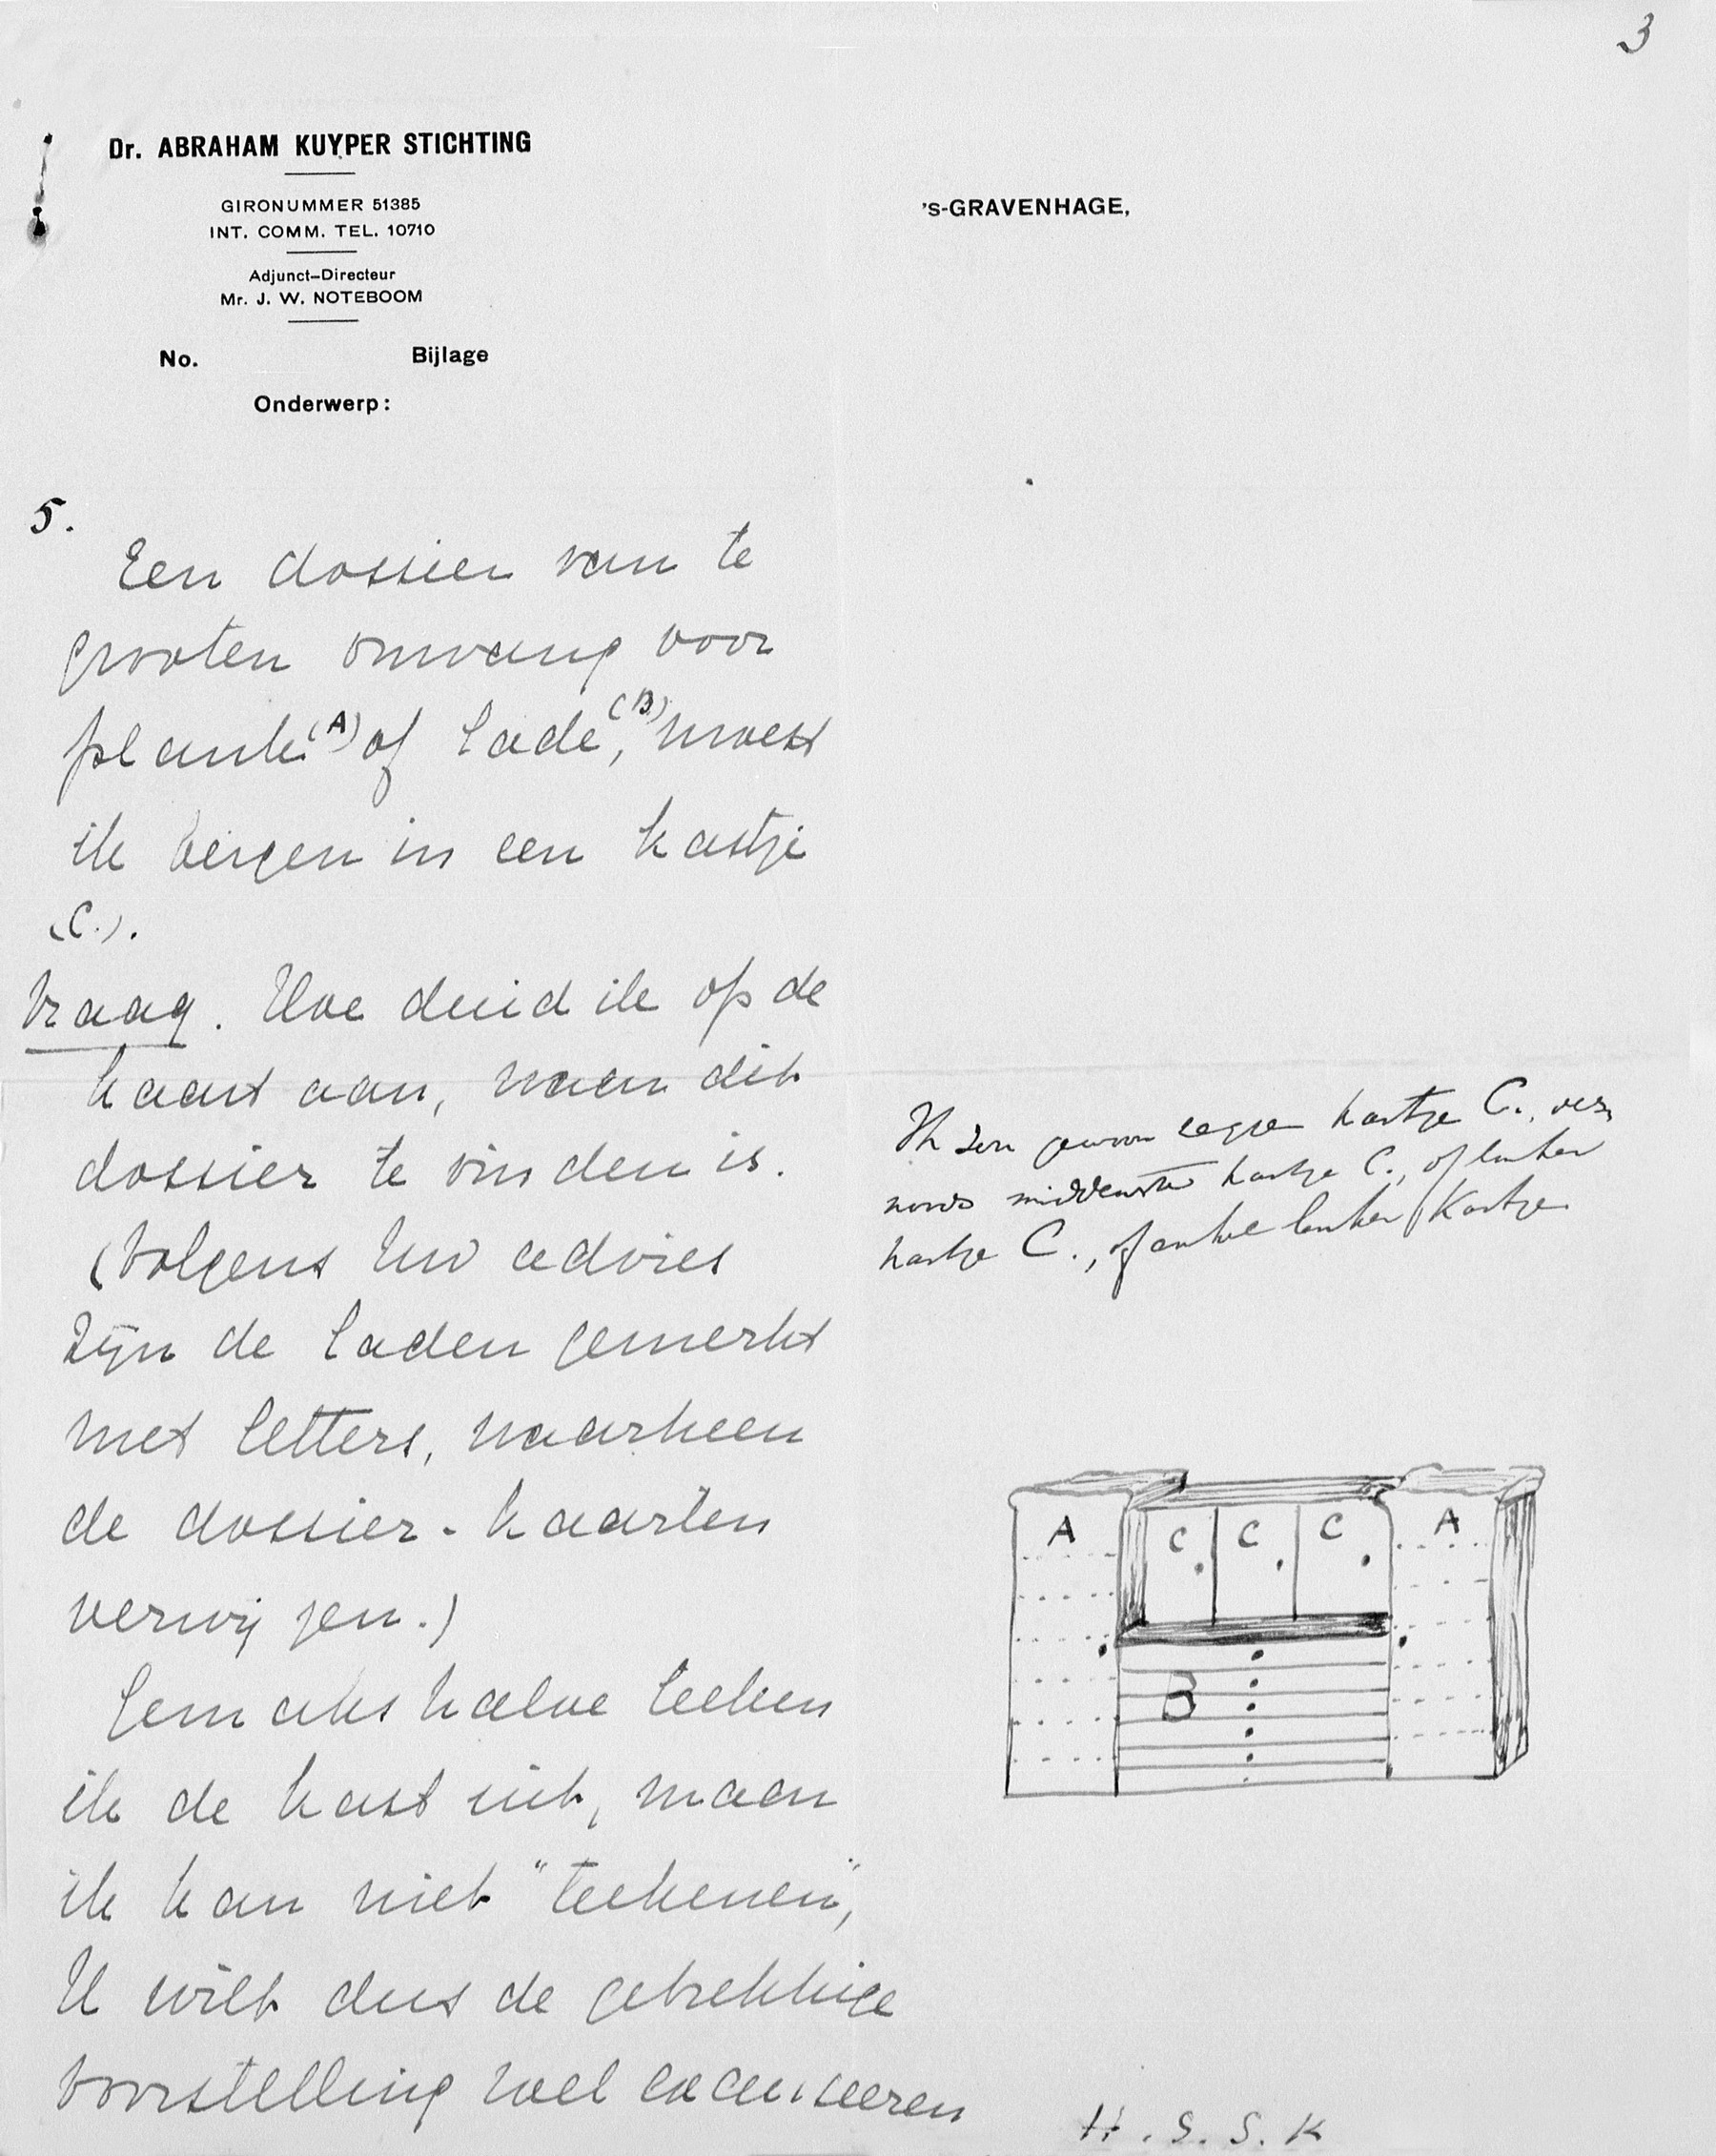 3
Dr. ABRAHAM KUYPER STICHTING
GIRONUMMER 51385
INT. COMM. TEL. 10710
Adjunct-Directeur
Mr. J. W. NOTEBOOM
No. Bijlage
Onderwerp:
's-GRAVENHAGE,
5.
Een dossier van te
grooten omvang voor
plank (A) of lade (B), moest
ik bergen in een kastje
(C.).
Vraag. Hoe duid ik op de
kaart aan, waar dit
dossier te vinden is.
(Volgens Uw advies
zijn de laden gemerkt
met letters, waarheen
de dossier-kaarten
verwijzen.)
Gemakshalve teeken
ik de kast uit, maar
ik kan niet "teekenen",
U wilt dus de gebrekkige
voorstelling wel excuseeren
Ik zou gewoon zeggen kastje C.,
middenste kastje C., of linker
kastje C., of enkel linker kastje
A C C C A
B
H.S.S.K